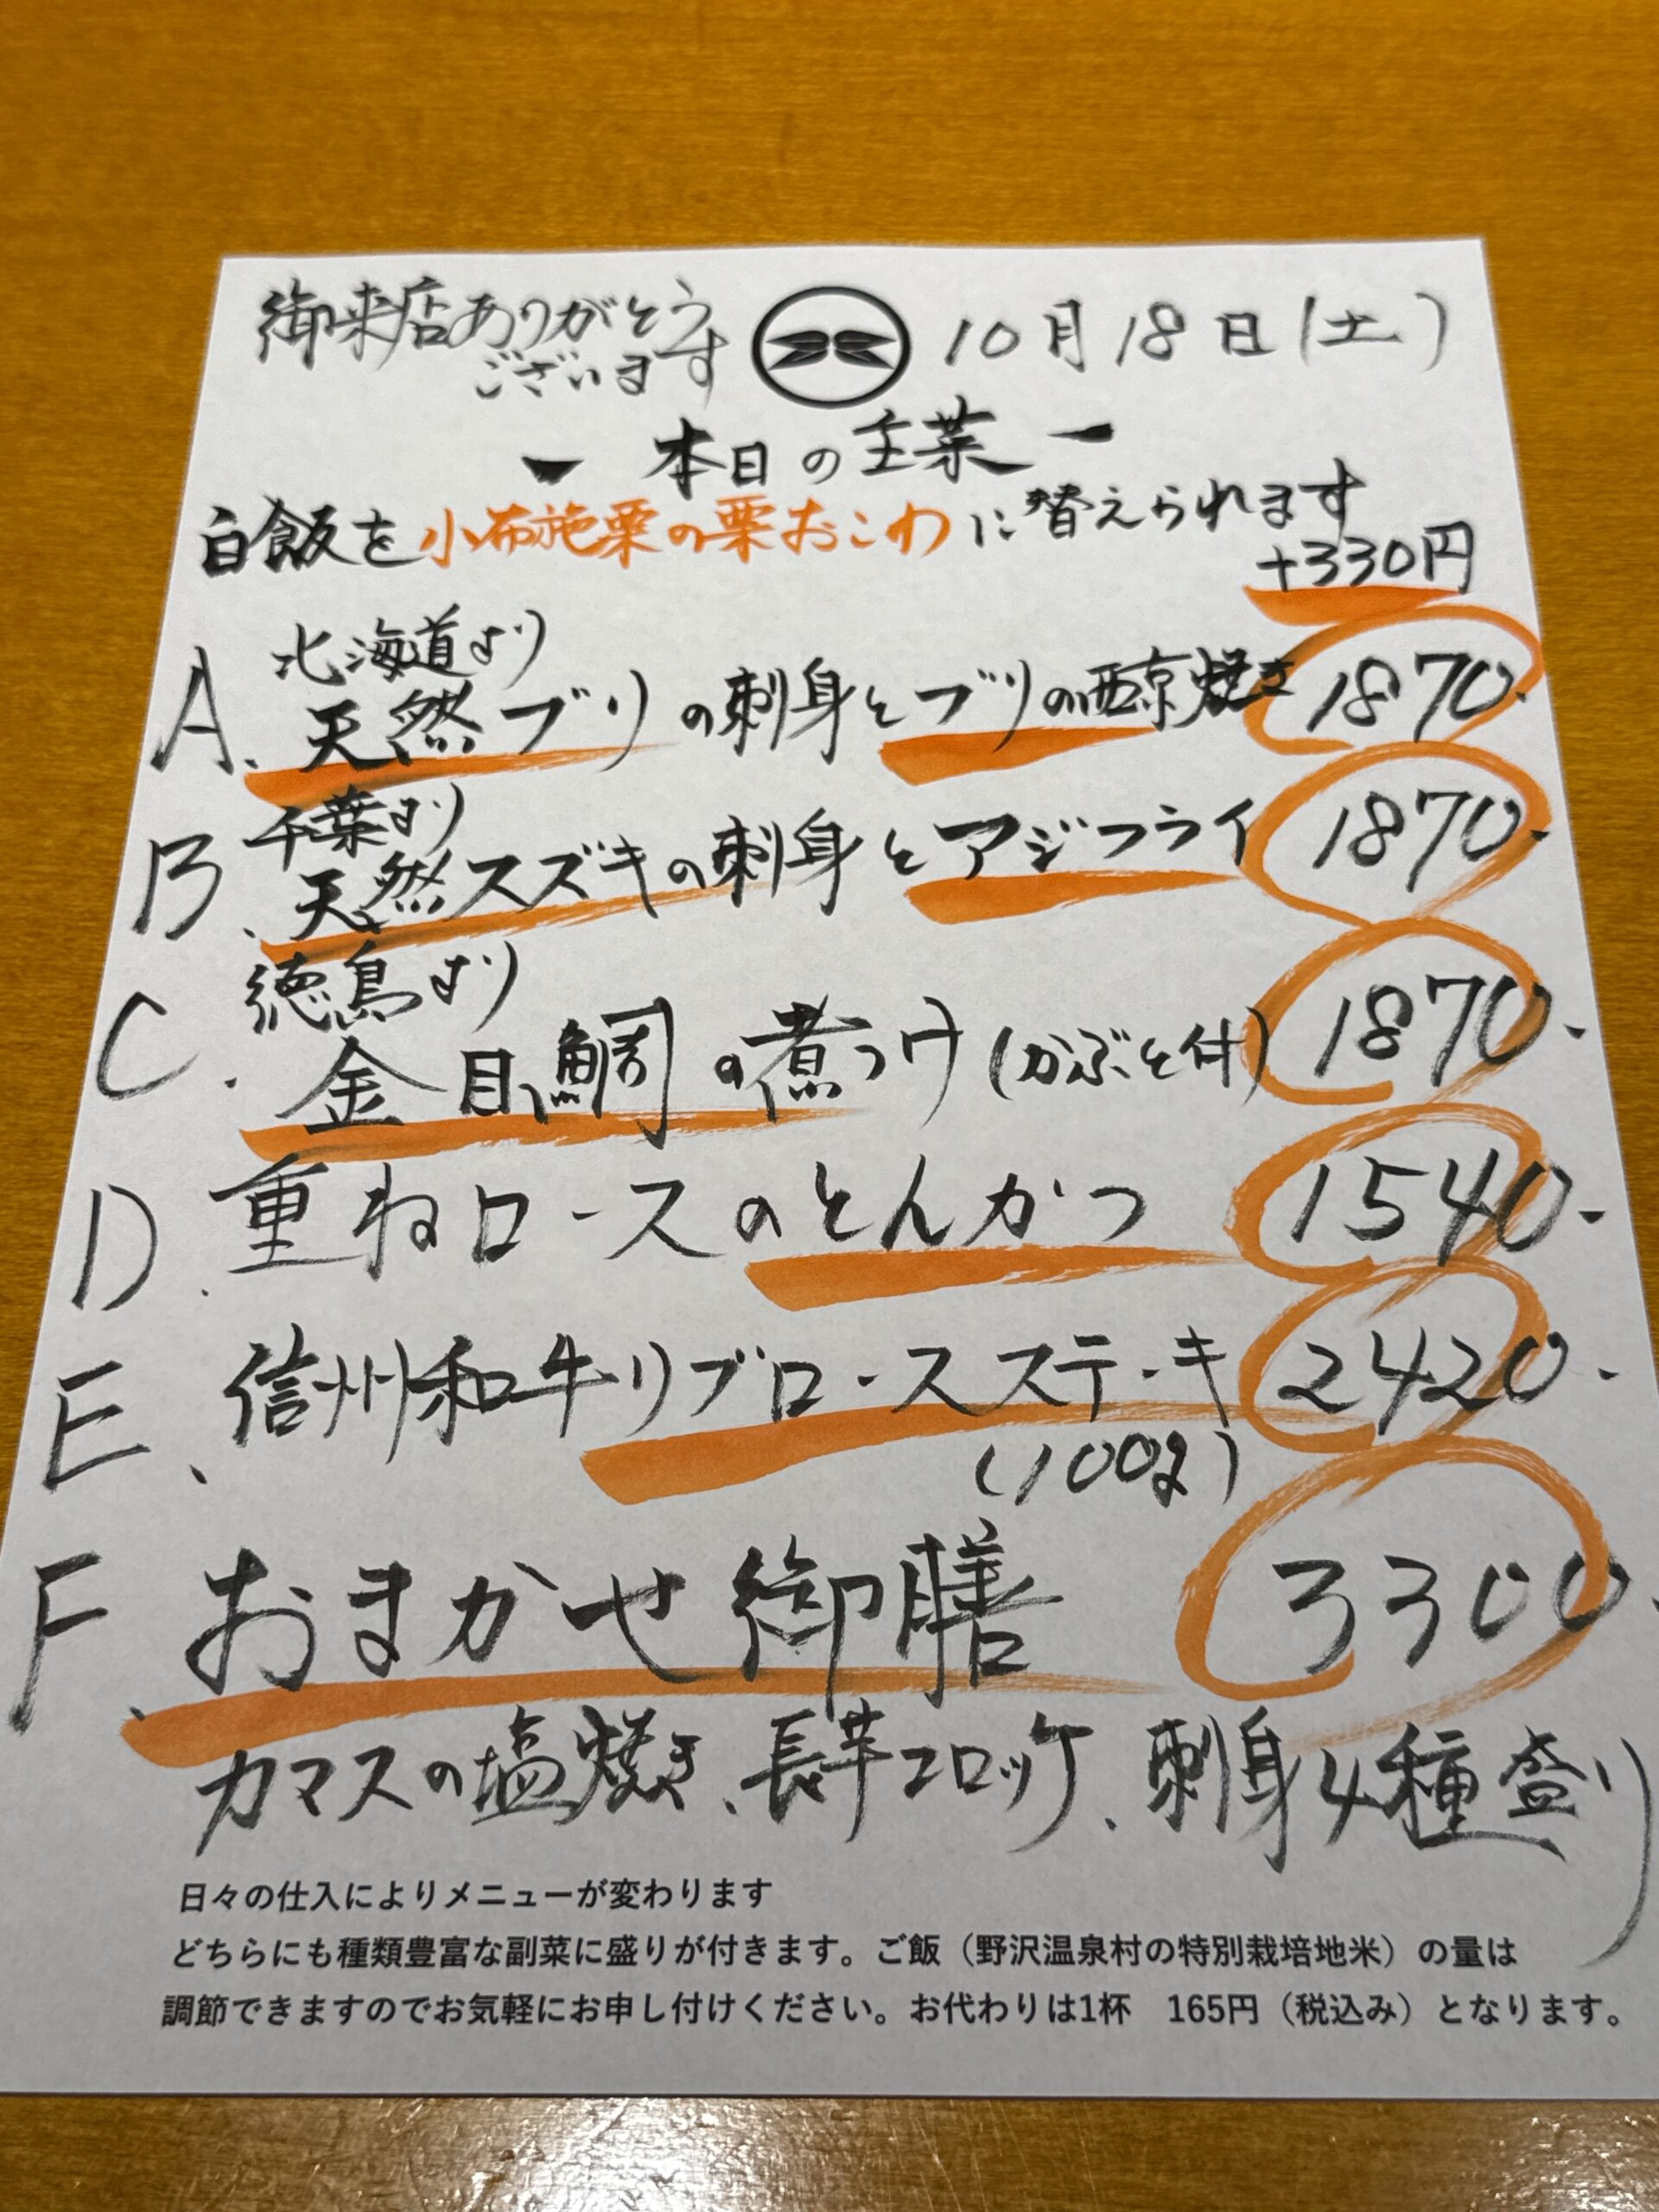 御来店ありがとう
ございます
10月18日(土)
- 本日の主菜 -
白飯を小布施栗の栗おこわに替えられます
+330円
北海道より
A. 天然ブリの刺身とブリの西京焼き 1870.-
千葉より
B. 天然スズキの刺身とアジフライ 1870.-
徳島より
C. 金目鯛の煮つけ(かぶと付) 1870.-
D. 重ねロースのとんかつ 1540.-
E. 信州和牛リブロースステーキ 2420.-
(100g)
F. おまかせ御膳 3300.-
カマスの塩焼き、長芋コロッケ、刺身4種盛り
日々の仕入によりメニューが変わります
どちらにも種類豊富な副菜に盛りが付きます。ご飯（野沢温泉村の特別栽培地米）の量は
調節できますのでお気軽にお申し付けください。お代わりは1杯　165円（税込み）となります。